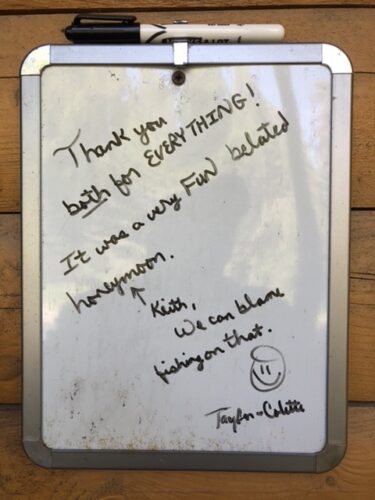 Thank you
both for EVERYTHING!
It was a very FUN belated
honeymoon.
Keith,
We can blame
fishing on that.
Taylor - Colette